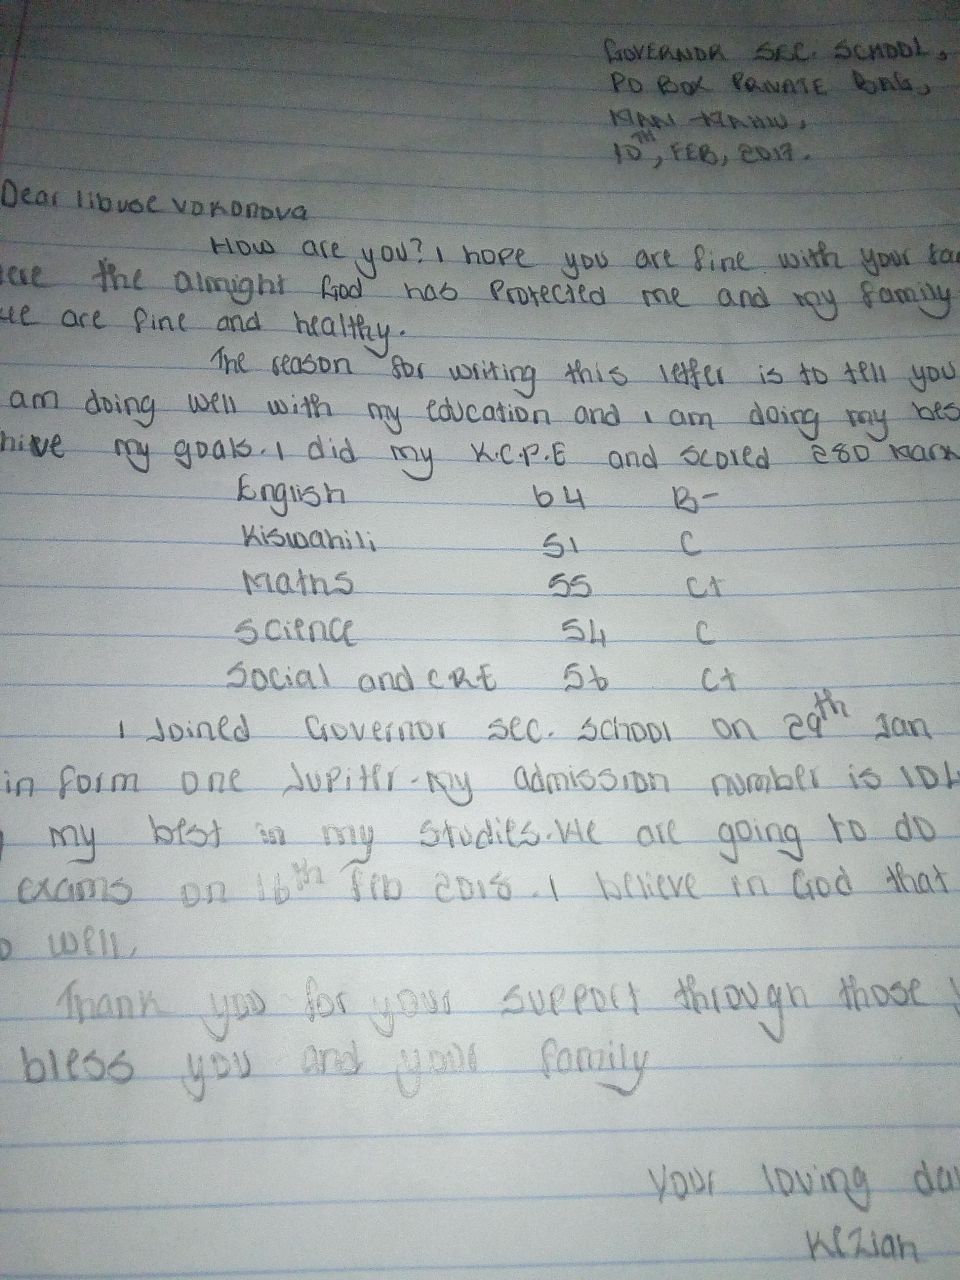 GOVERNOR SEC. SCHOOL,
PO BOX PRIVATE BAG,
10TH, FEB, 2017.
Dear libuse vokonova
How are you? I hope you are fine with your fa
ere the almight God has Protected me and my family
we are fine and healthy.
The reason for writing this letter is to tell you
am doing well with my education and I am doing my bes
hieve my goals. I did my K.C.P.E and scored 280 mark
English 64 B-
Kiswahili 51 C
Maths 55 C+
Science 54 C
Social and CRE 56 C+
I Joined Governor sec. school on 29th Jan
in form one Jupiter. My admission number is 104
my best in my studies. We are going to do
exams on 16th Feb 2018. I believe in God that
o well.
Thank you for your support through those y
bless you and your family
Your loving dau
Kezian